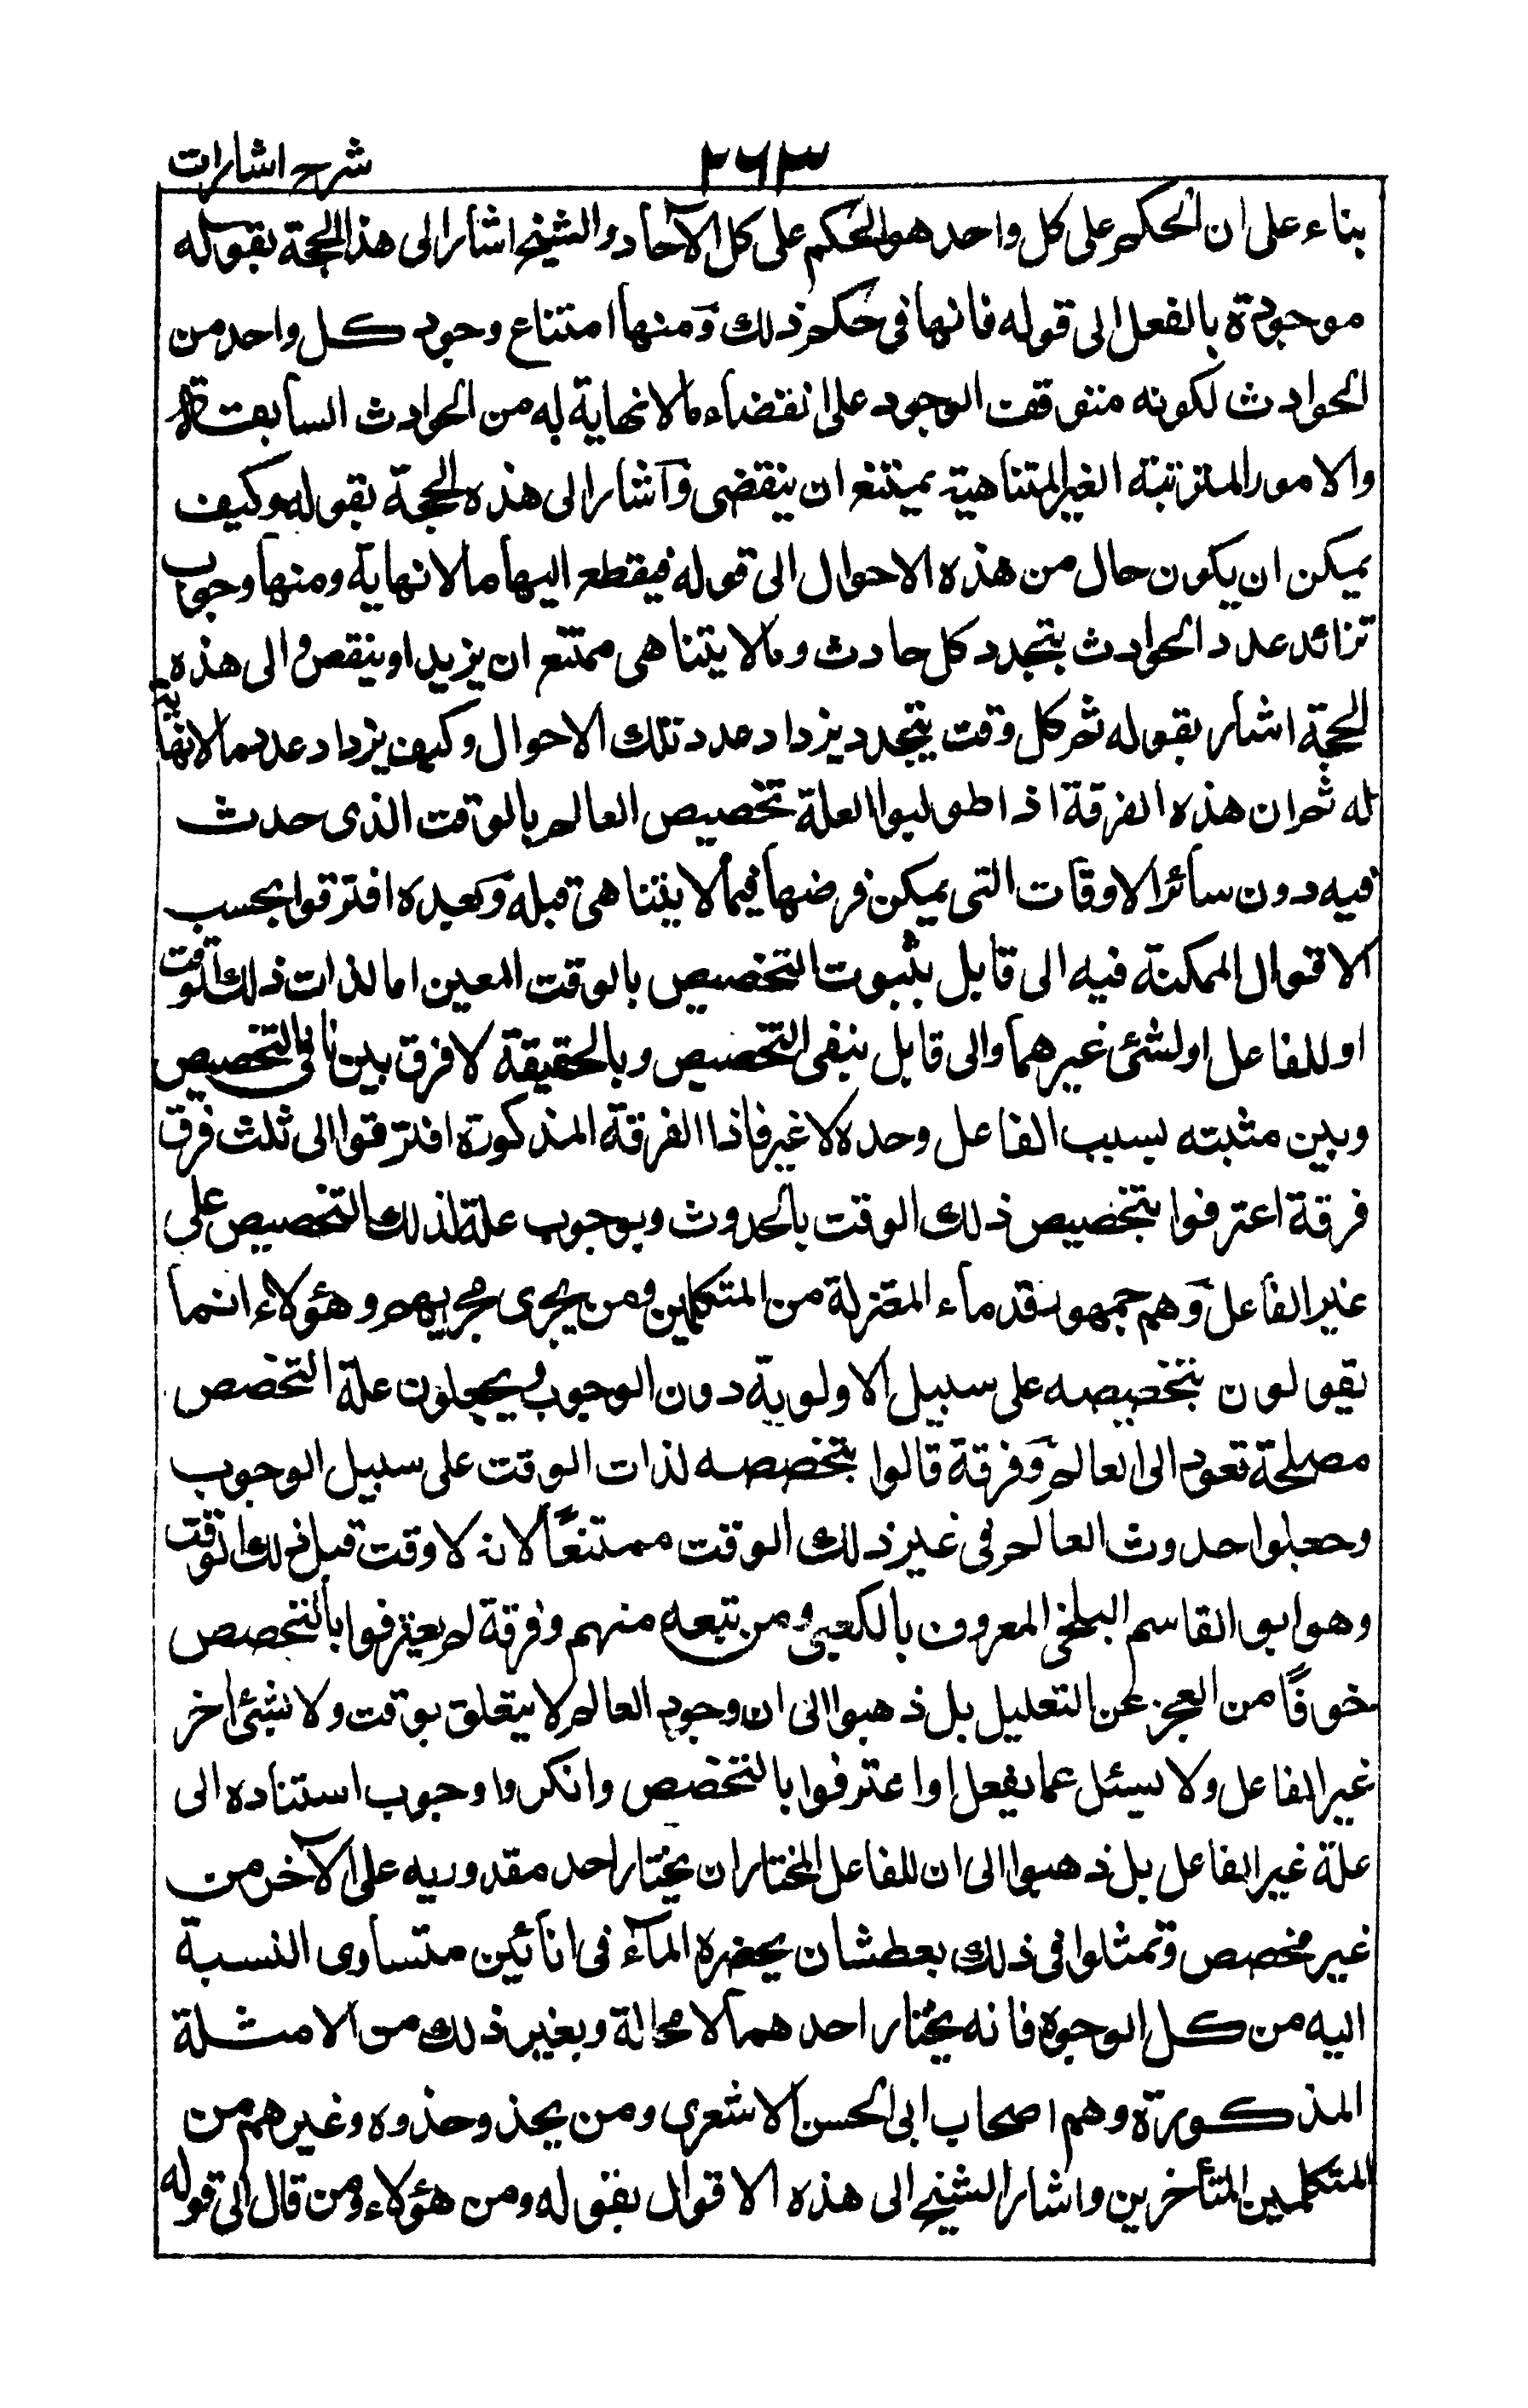 شرح اشارات
٢٦٣
بناء على ان الحكم على كل واحد هو الحكم على كل الآحاد والشيخ اشار الى هذا الحجة بقوله
موجودة بالفعل الى قوله فانها فى حكم ذلك ومنها امتناع وجود كل واحد من
الحوادث لكونه متوقفت الوجود على انقضاء مالا نهاية له من الحوادث السابقة
والامور المترتبة الغير المتناهية يمتنع ان ينقضى وآشار الى هذه الحجة بقوله وكيف
يمكن ان يكون حال من هذه الاحوال الى قوله فيقطع اليها مالا نهاية ومنها وجوب
تزائد عدد الحوادث بتجدد كل حادث ومالا يتناهى ممتنع ان يزيد او ينقص والى هذه
الحجة اشار بقوله ثم كل وقت يتجدد يزداد عدد تلك الاحوال وكيف يزداد عدد مالا نهاية
له ثم ان هذه الفرقة اذا طولبوا العلة تخصيص العالم بالوقت الذى حدث
فيه دون سائر الاوقات التى يمكن فرضها فيما لا يتناهى قبله وبعده افترقوا بحسب
الاقوال الممكنة فيه الى قايل بثبوت التخصيص بالوقت المعين اما لذات ذلك الوقت
او للفاعل او لشئ غيرهما والى قايل بنفى التخصيص وبالحقيقة لا فرق بين نافى التخصيص
وبين مثبته بسبب الفاعل وحده لا غير فاذا الفرقة المذكورة افترقوا الى ثلث فرق
فرقة اعترفوا بتخصيص ذلك الوقت بالحدوث وبوجوب علة لذلك التخصيص على
غير الفاعل وهم جمهور قدماء المعتزلة من المتكلمين ومن يجرى مجريهم وهؤلاء انما
يقولون بتخصيصه على سبيل الاولوية دون الوجوب ويجعلون علة التخصص
مصلحة تعود الى العالم وفرقة قالوا بتخصصه لذات الوقت على سبيل الوجوب
وجعلوا حدوث العالم فى غير ذلك الوقت ممتنعاً لانه لا وقت قبل ذلك الوقت
وهو ابو القاسم البلخى المعروف بالكعبى ومن تبعه منهم وفرقة لم يعترفوا بالتخصص
خوفًا من العجز عن التعليل بل ذهبوا الى ان وجود العالم لا يتعلق بوقت ولا بشئ اخر
غير الفاعل ولا يسئل عما يفعل او اعترفوا بالتخصص وانكروا وجوب استناده الى
علة غير الفاعل بل ذهبوا الى ان للفاعل المختار ان يختار احد مقدوريه على الآخر من
غير مخصص وتمثلوا فى ذلك بعطشان يحضره المآء فى انائين متساوى النسبة
اليه من كل الوجوه فانه يختار احدهما لا محالة وبغير ذلك من الامثلة
المذكورة وهم اصحاب ابى الحسن الاشعرى ومن يحذو حذوه وغيرهم من
المتكلمين المتأخرين واشار الشيخ الى هذه الاقوال بقوله ومن هؤلاء ومن قال الى قوله